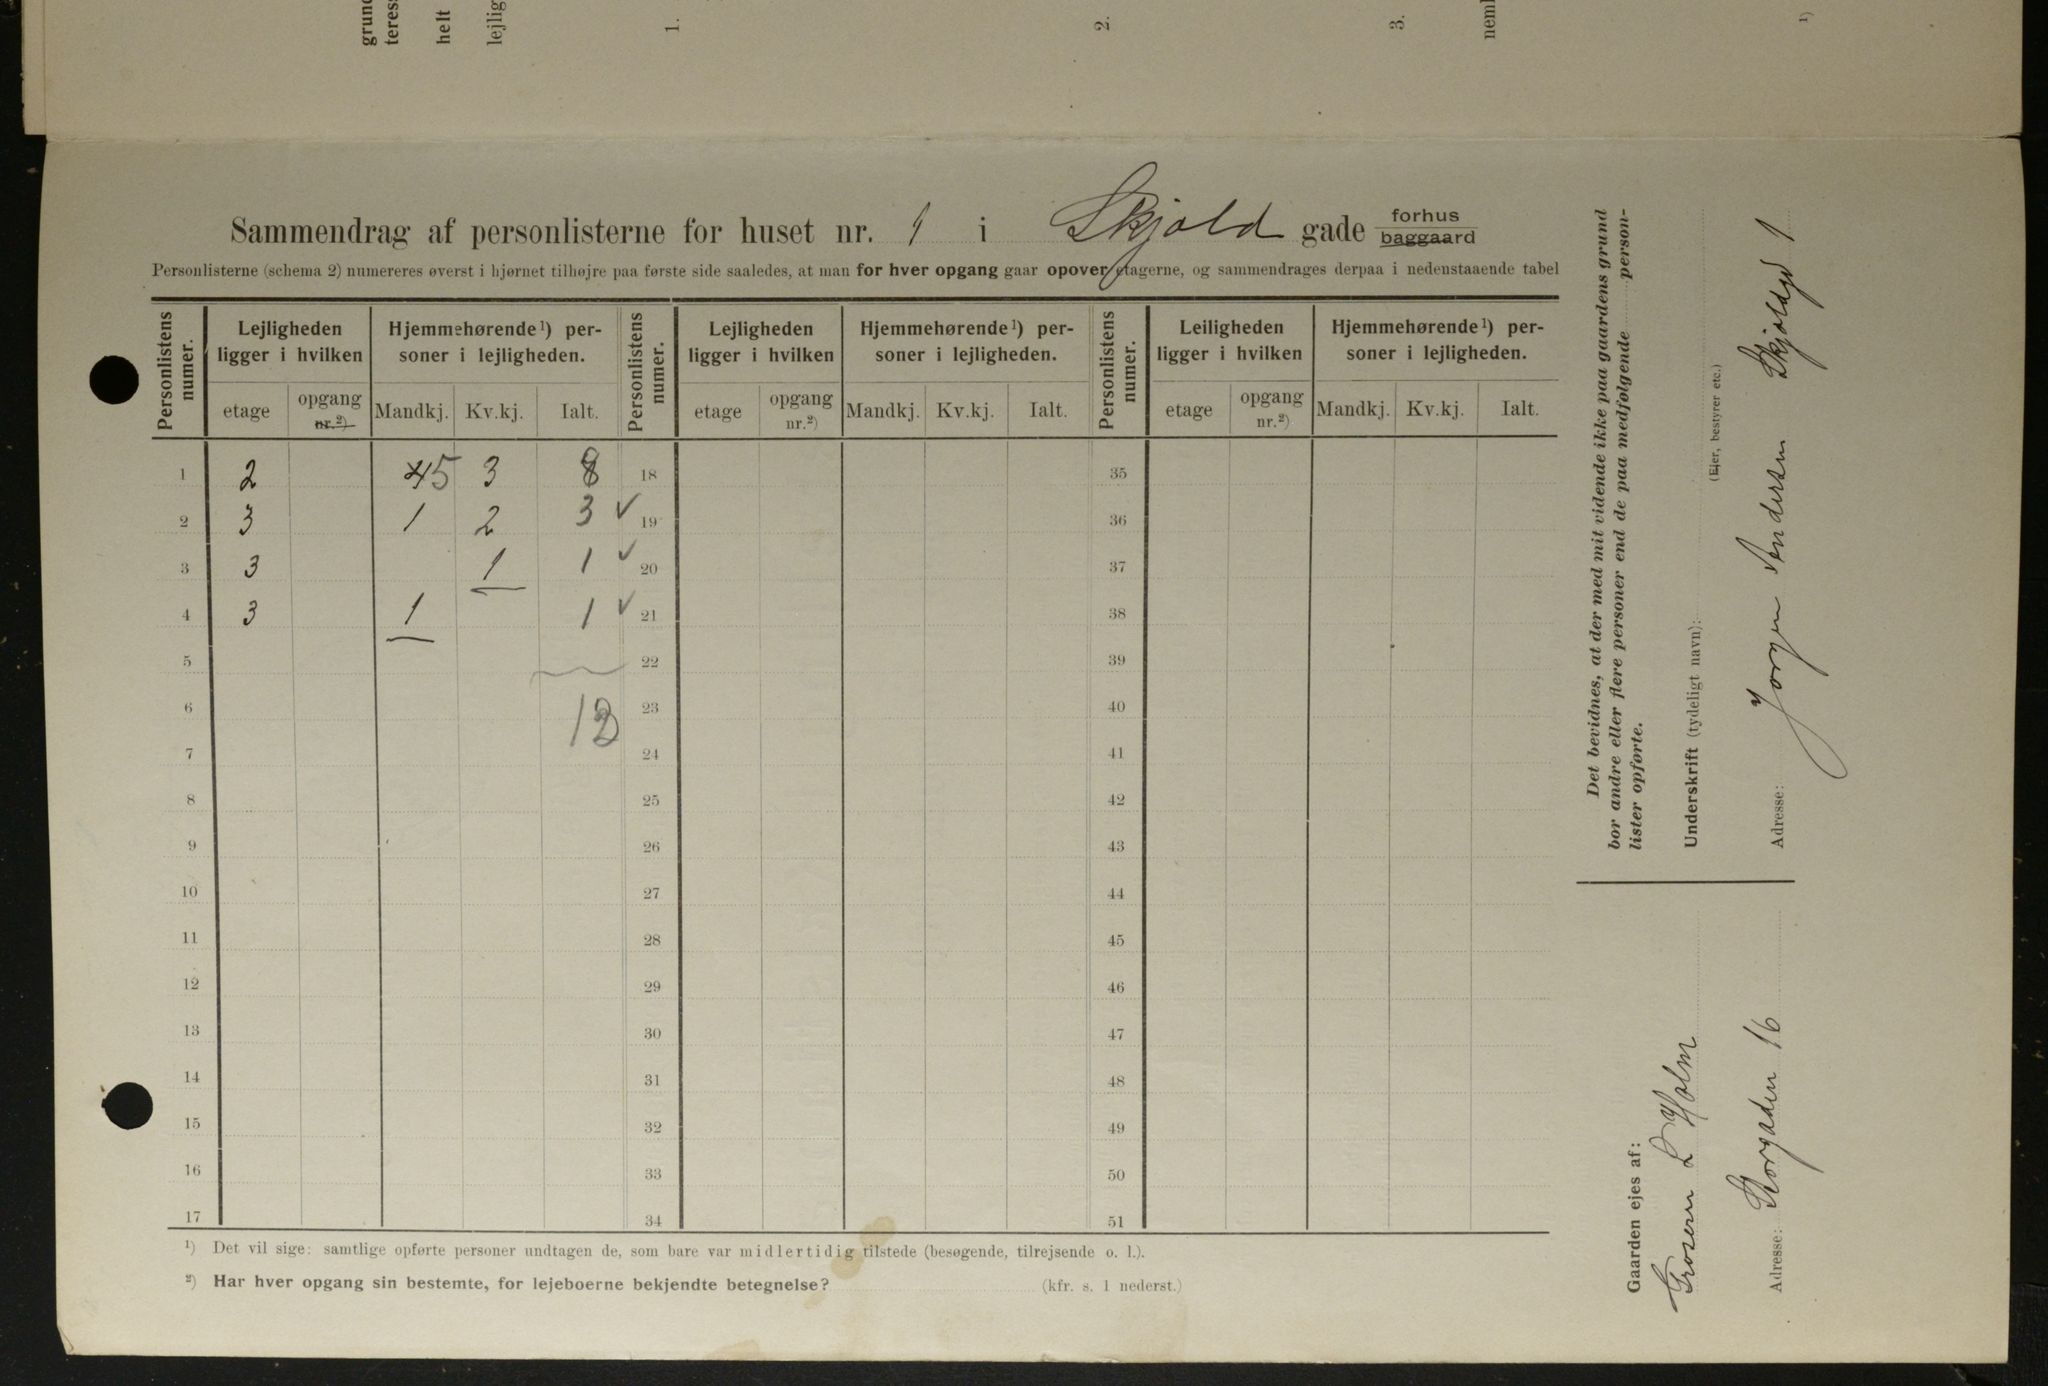 grund
teress
helt
lejlig
1.
2.
3.
neml
1)
Sammendrag af personlisterne for huset nr. 1 i Skjold gade forhus baggaard
Personlisterne (schema 2) numereres øverst i hjørnet tilhøjre paa første side saaledes, at man for hver opgang gaar opover etagerne, og sammendrages derpaa i nedenstaaende tabel
Personlistens numer. | Lejligheden ligger i hvilken | Hjemmehørende¹) personer i lejligheden. | Personlistens numer. | Lejligheden ligger i hvilken | Hjemmehørende¹) personer i lejligheden. | Personlistens numer. | Leiligheden ligger i hvilken | Hjemmehørende¹) personer i lejligheden.
etage | opgang nr.²) | Mandkj. | Kv.kj. | Ialt. | etage | opgang nr.²) | Mandkj. | Kv.kj. | Ialt. | etage | opgang nr.²) | Mandkj. | Kv.kj. | Ialt.
1 2 45 3 8 18 35
2 3 1 2 3 ✓ 19 36
3 3 1 1 ✓ 20 37
4 3 1 1 ✓ 21 38
5 22 39
6 23 40
13
7 24 41
8 25 42
9 26 43
10 27 44
11 28 45
12 29 46
13 30 47
14 31 48
15 32 49
16 33 50
17 34 51
¹) Det vil sige: samtlige opførte personer undtagen de, som bare var midlertidig tilstede (besøgende, tilrejsende o. l.).
²) Har hver opgang sin bestemte, for lejeboerne bekjendte betegnelse? (kfr. s. 1 nederst.)
Det bevidnes, at der med mit vidende ikke paa gaardens grund
bor andre eller flere personer end de paa medfølgende person-
lister opførte.
Underskrift (tydeligt navn):
(Ejer, bestyrer etc.)
Jørgen Andersen Skjoldgd 1
Adresse:
Gaarden ejes af:
Grosserer L Holm
Adresse: Storgaden 16